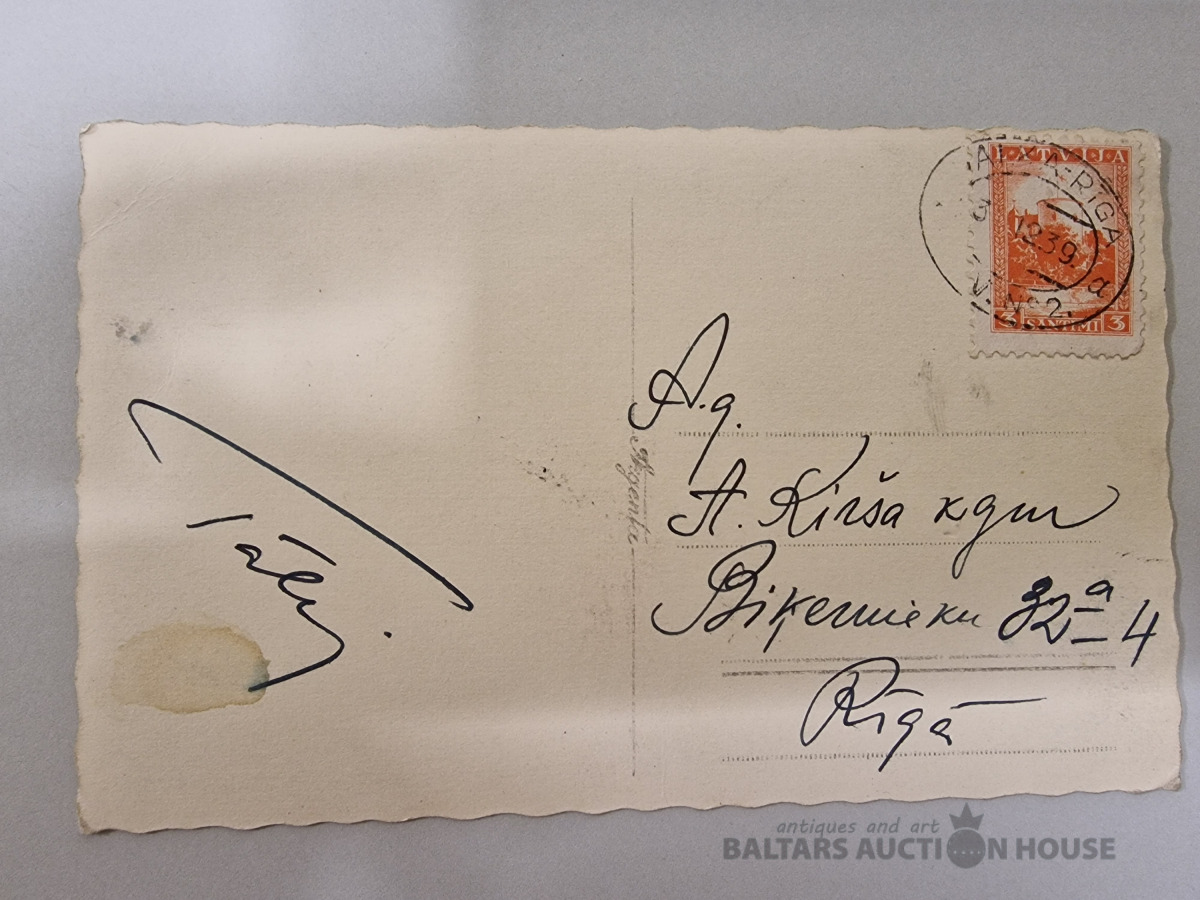 LATVIJA
3 SANTĪMI 3
-RĪGA
12 39.
a
№2.
A.g.
A. Ķirša kgm
Biķernieku 32a 4
Rīgā
antiques and art
BALTARS AUCTION HOUSE